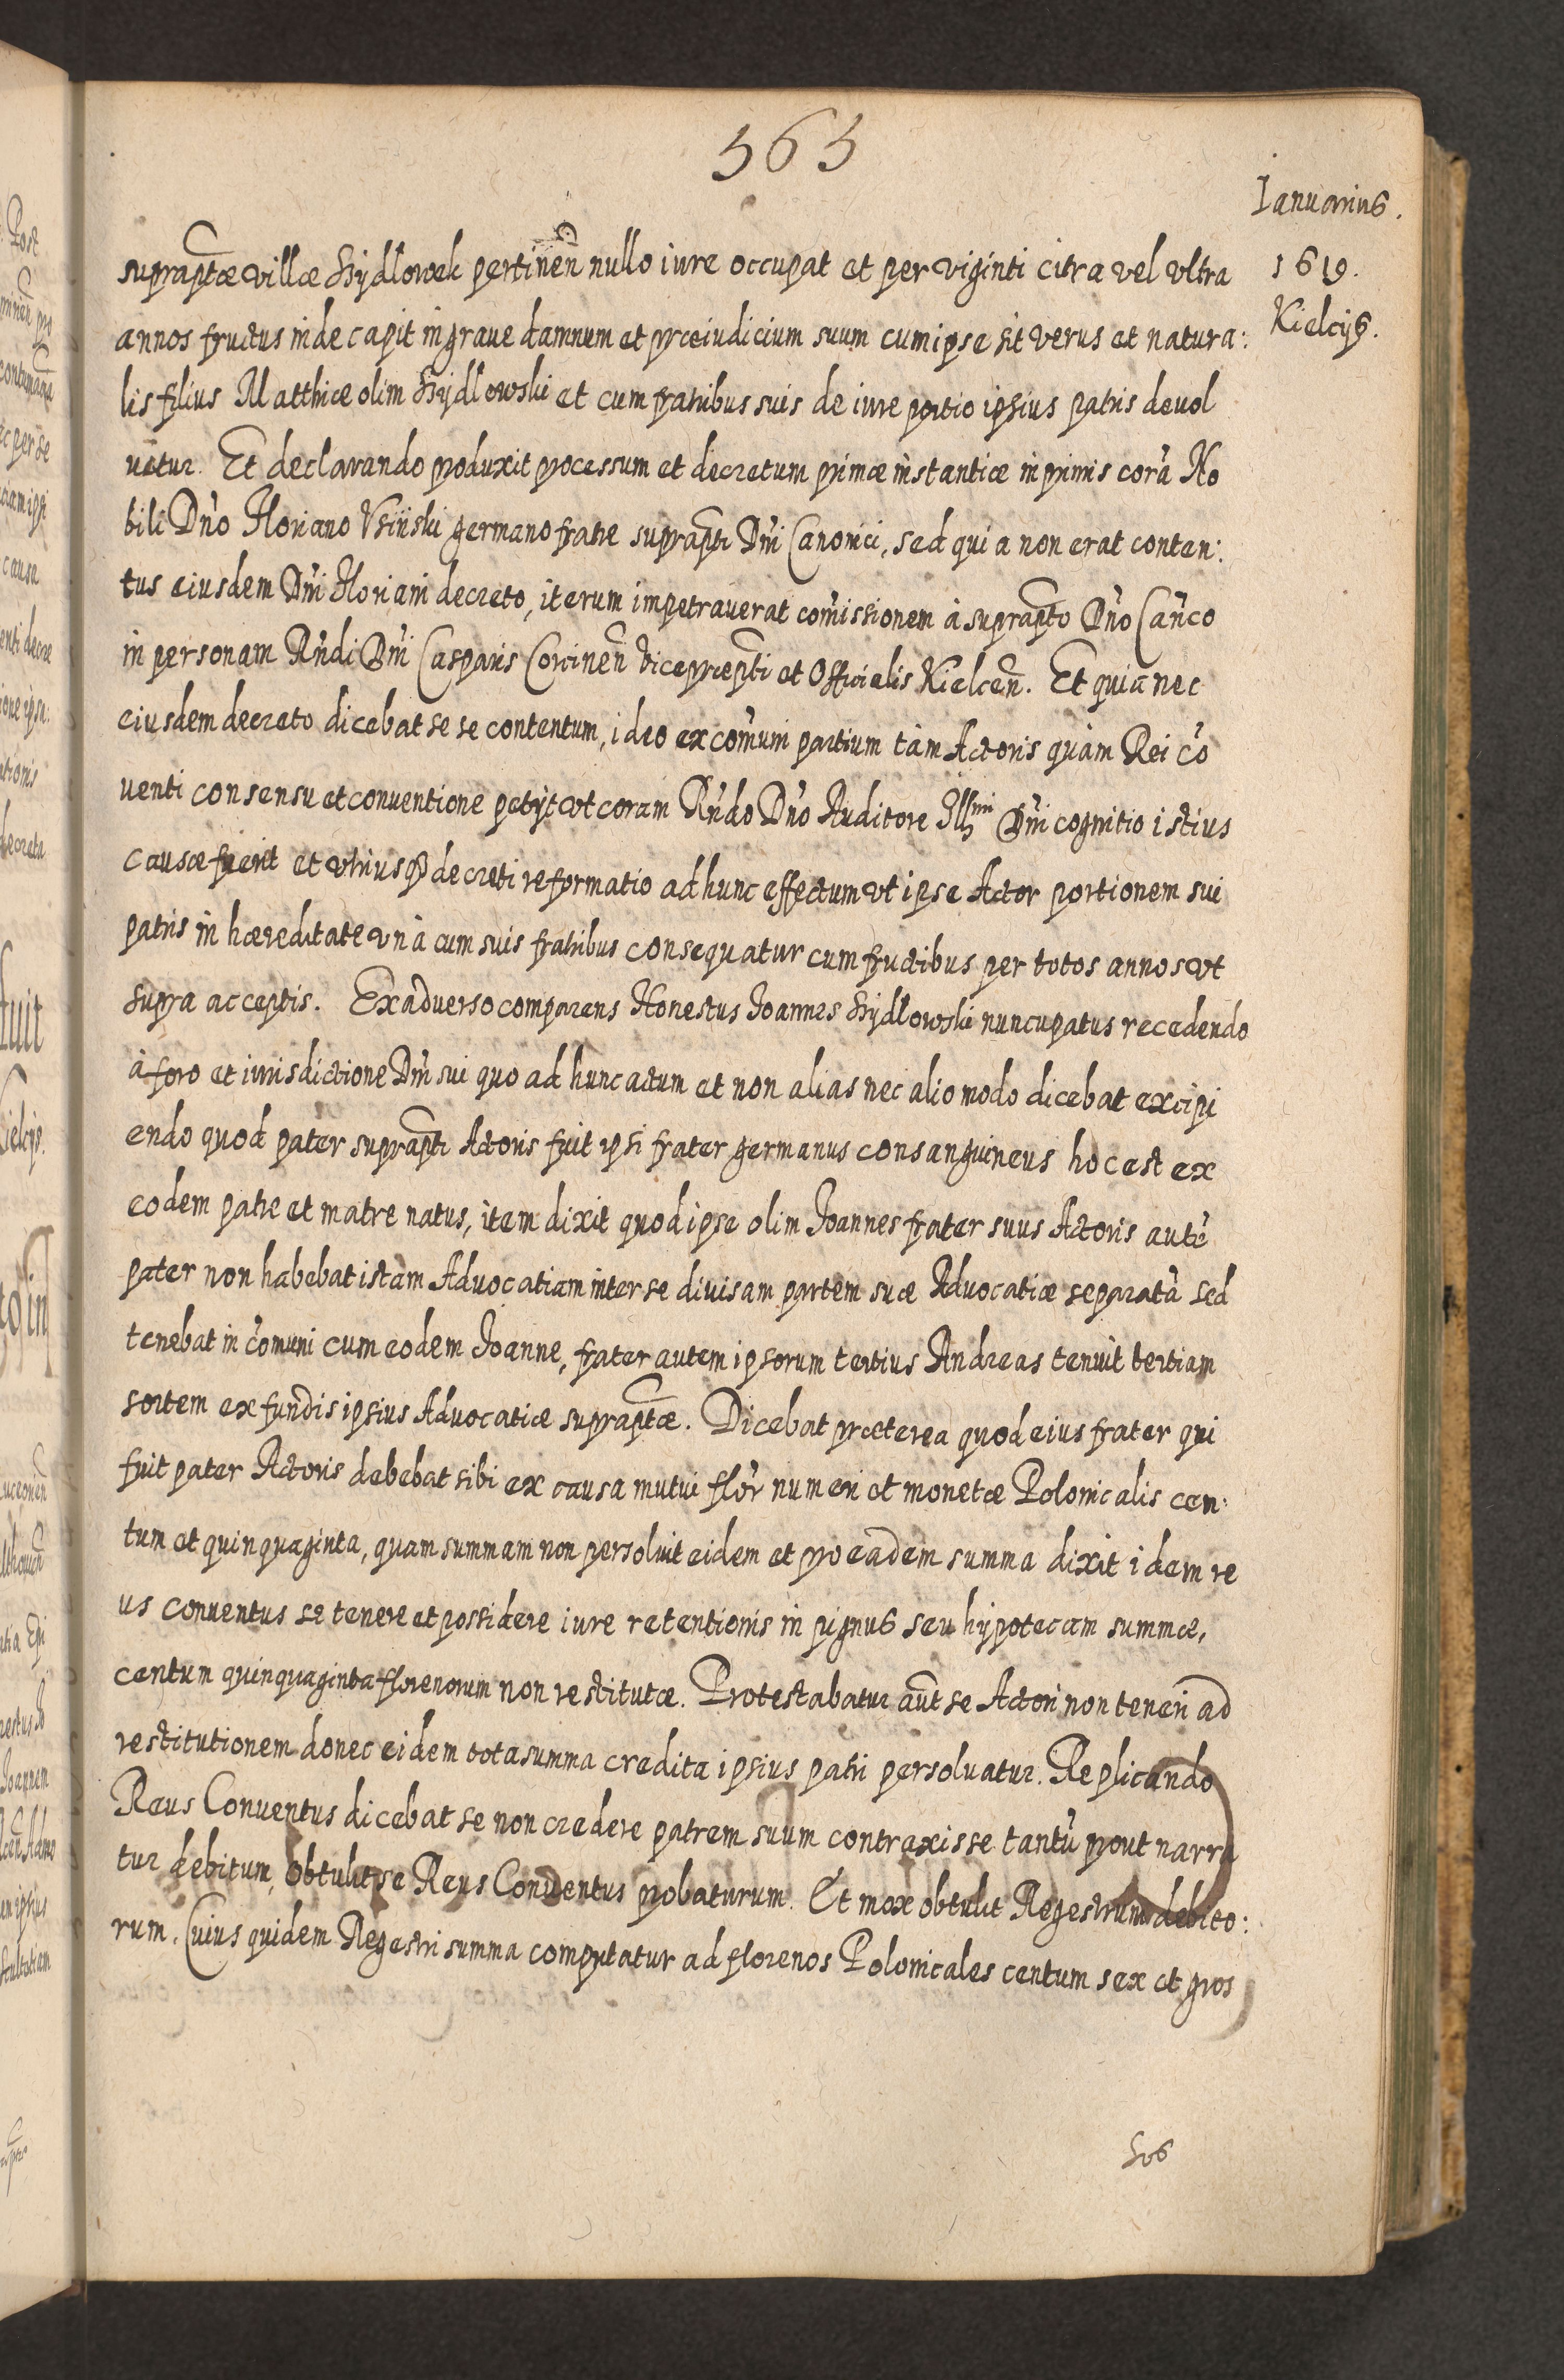 565
Ianuarius.
1619.
Kielcijs.
supraptæ villæ Szydlowek pertinen̄ nullo iure occupat et per viginti citra vel vltra
annos fructus inde capit in graue damnum et præiudicium suum cum ipse sit verus et natura:
lis filius Matthiæ olim Szydlowski et cum fratribus suis de iure portio ipsius patris deuol
vetur. Et declarando produxit processum et decretum primæ instantiæ in primis corā No
bili Dn̄o Floriano Vsiński germano fratre suprapti Dn̄i Canonici, sed quia non erat conten:
tus eiusdem Dn̄i Floriani decreto, iterum impetrauerat com̄issionem à suprapto Dn̄o Can̄co
in personam Rn̄di Dn̄i Casparis Corcinen̄ Viceprepti et Officialis Kielcen̄. Et quia nec
eiusdem decreto dicebat se se contentum, ideo ex com̄uni partium tàm Actoris quàm Rei cō
uenti consensu et conuentione petijt vt coram Rn̄do Dn̄o Auditore Illmi Dn̄i cognitio istius
causæ fierit et vtriusq decreti reformatio ad hunc effectum vt ipse Actor portionem sui
patris in hæreditate vnà cum suis fratribus consequatur cum fructibus per totos annos vt
supra acceptis. Ex aduerso comparens Honestus Joannes Szydlowski nuncupatus recedendo
à foro et iurisdictione Dn̄i sui quo ad hunc actum et non alias nec alio modo dicebat excipi
endo quod pater suprapti Actoris fuit ipsi frater germanus consanguineus hoc est ex
eodem patre et matre natus, item dixit quod ipse olim Joannes frater suus Actoris autē
pater non habebat istam Aduocatiam inter se diuisam partem suæ Aduocatiæ separatā sed
tenebat in cōmuni cum eodem Joanne, frater autem ipsorum tertius Andreas tenuit tertiam
sortem ex fundis ipsius Aduocatiæ supraptæ. Dicebat præterea quod eius frater qui
fuit pater Actoris debebat sibi ex causa mutui flor̄ numeri et monetæ Polonicalis cen:
tum et quinquaginta, quam summam non persoluit eidem et pro eadem summa dixit idem re
us conuentus se tenere et possidere iure retentionis in pignus seu hypotecam summæ,
centum quinquaginta florenorum non restitutæ. Protestabatur aūt se Actori non teneri ad
restitutionem donec eidem tota summa credita ipsius patri persoluatur. Replicando
Reus Conuentus dicebat se non credere patrem suum contraxisse tantū prout narra
tur debitum, obtulit se Reus Conuentus probaturum. Et mox obtulit Regestrum debito:
rum. Cuius quidem Regestri summa computatur ad florenos Polonicales centum sex et gros